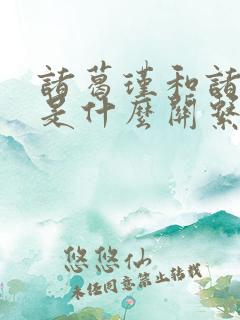 諸葛瑾和諸
是什麼關繫
悠悠仙
未经同意禁止转载